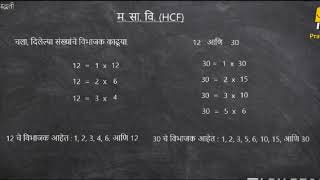 म. सा. वि. (HCF)
चला, दिलेल्या संख्यांचे विभाजक काढूया.
12 आणि 30
12 = 1 x 12
12 = 2 x 6
12 = 3 x 4
30 = 1 x 30
30 = 2 x 15
30 = 3 x 10
30 = 5 x 6
12 चे विभाजक आहेत : 1, 2, 3, 4, 6, आणि 12
30 चे विभाजक आहेत : 1, 2, 3, 5, 6, 10, 15, आणि 30